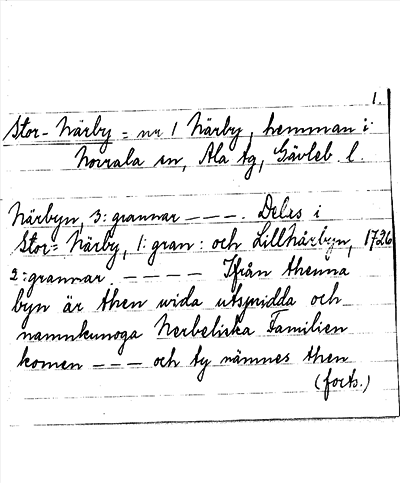 1.
Stor-Närby = nr 1 Närby, hemman i
Norrala sn, Ala tg, Gävleb. l.
Närbyn, 3: grannar ---. Deles i
Stor= Närby, 1: gran: och Lillnärbyn, 1726
2: grannar. ---- Ifrån thenna
byn är then wida utspridda och
namnkunoga Nerbeliska Familien
komen --- och ty nämnes then
(forts.)